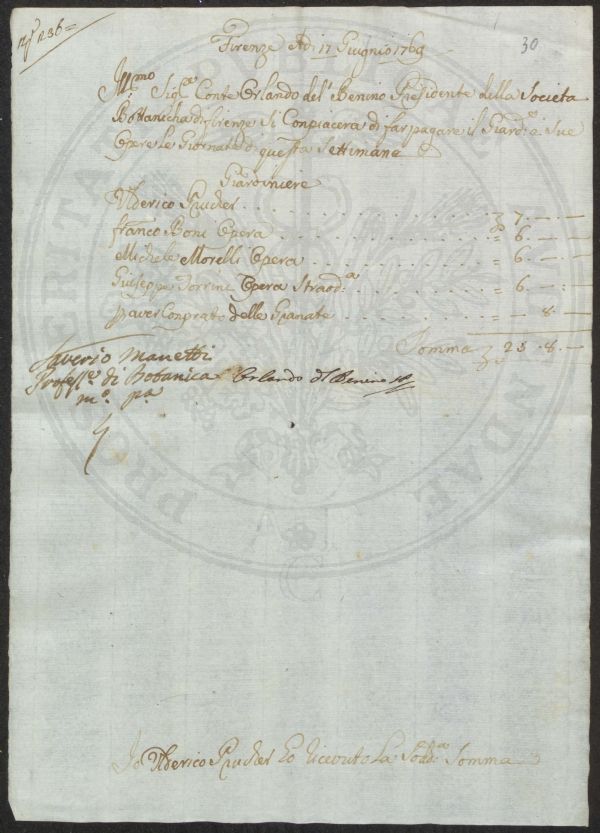 N° 236=
30
Firenze Adi 17 Giugnio 1769
Ill:mo Sig:e Conte Orlando del' Benino Presidente della Societa
Bottanicha di firenze Si Conpiacera di far pagare il Giard:e e Sue
Opere le Giornate di questa Settimane
Giardiniere
Ulderico Prucker . . . 7. — —
franco Boni Opera . . . = 6. — —
Michele Morelli Opera . . . = 6. — —
Giuseppe Torrini Opera Straod:a . . . = 6. — :
p aver Conprato delle Granate . . . — 8. —
Somma 25. 8. —
Saverio Manetti
Profess:e di Botanica Orlando del Benino
m:o p:a
PROSPERITATI PUBLICAE AUGENDAE
A
C
Io Ulderico Prucker Ho riceuto La Sodd:a Somma